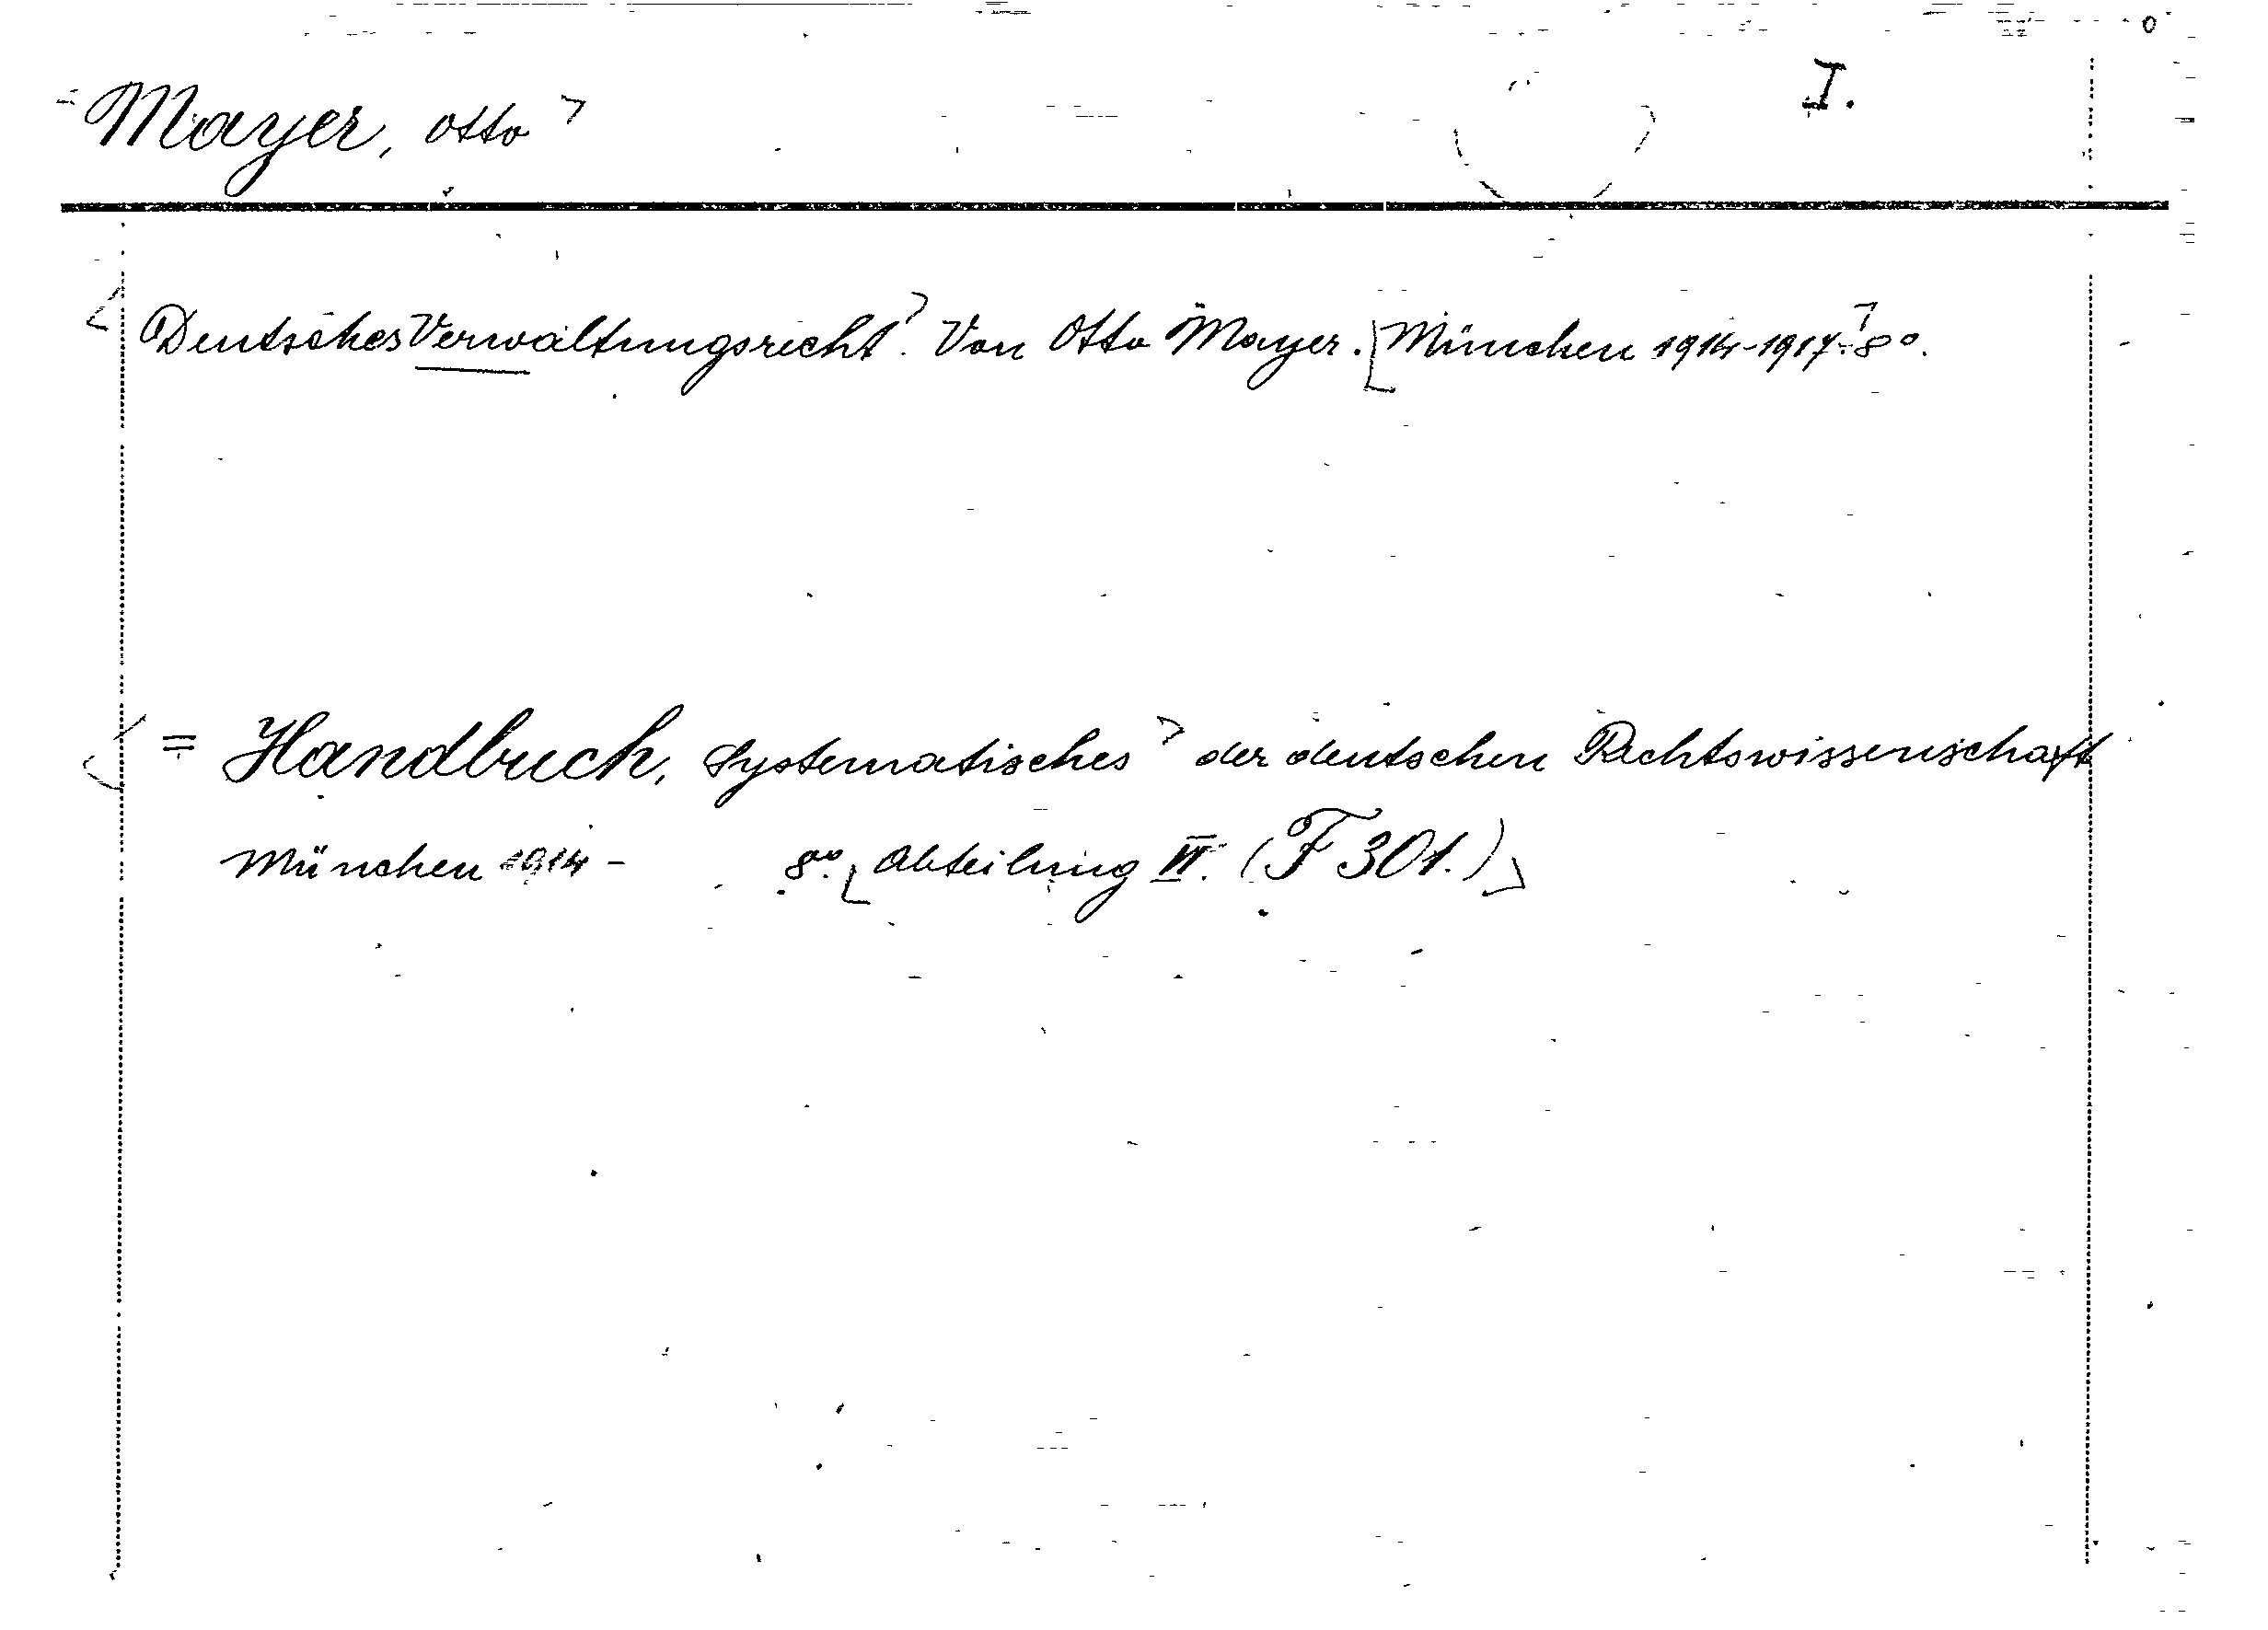 Mayer, Otto
I.
Deutsches Verwaltungsrecht. Von Otto Mayer. [München 1914-1917. 8°.
= Handbuch, Systematisches der deutschen Rechtswissenschaft
München 1914 - 8°. [Abteilung VI. (F 301.)]